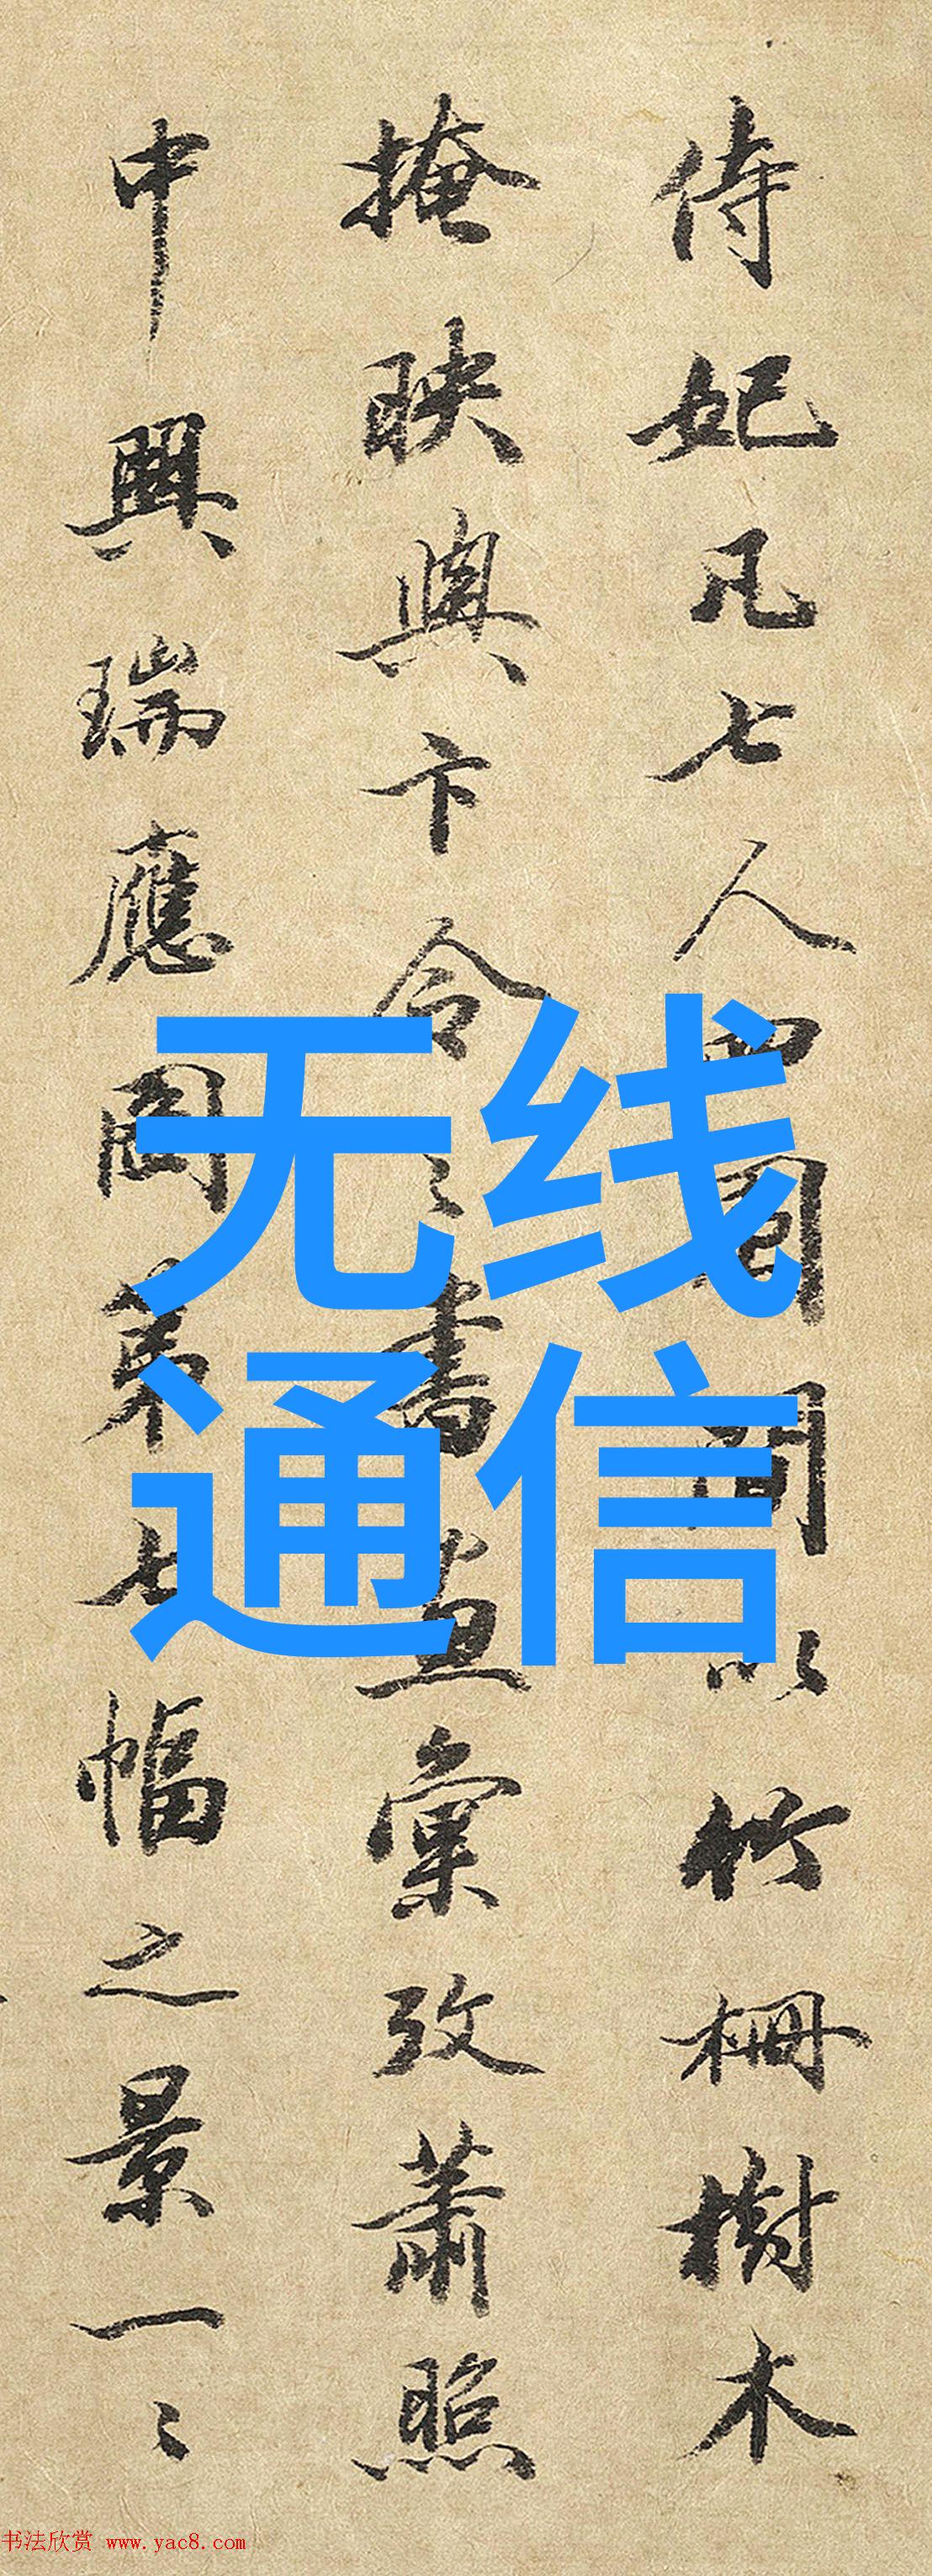 侍妃凡七人四園間以竹柵樹木
掩映與卞令之書畫彙攷蕭照
中興瑞應圖第七幅之景一一
无线
通信
书法欣赏 www.yac8.com